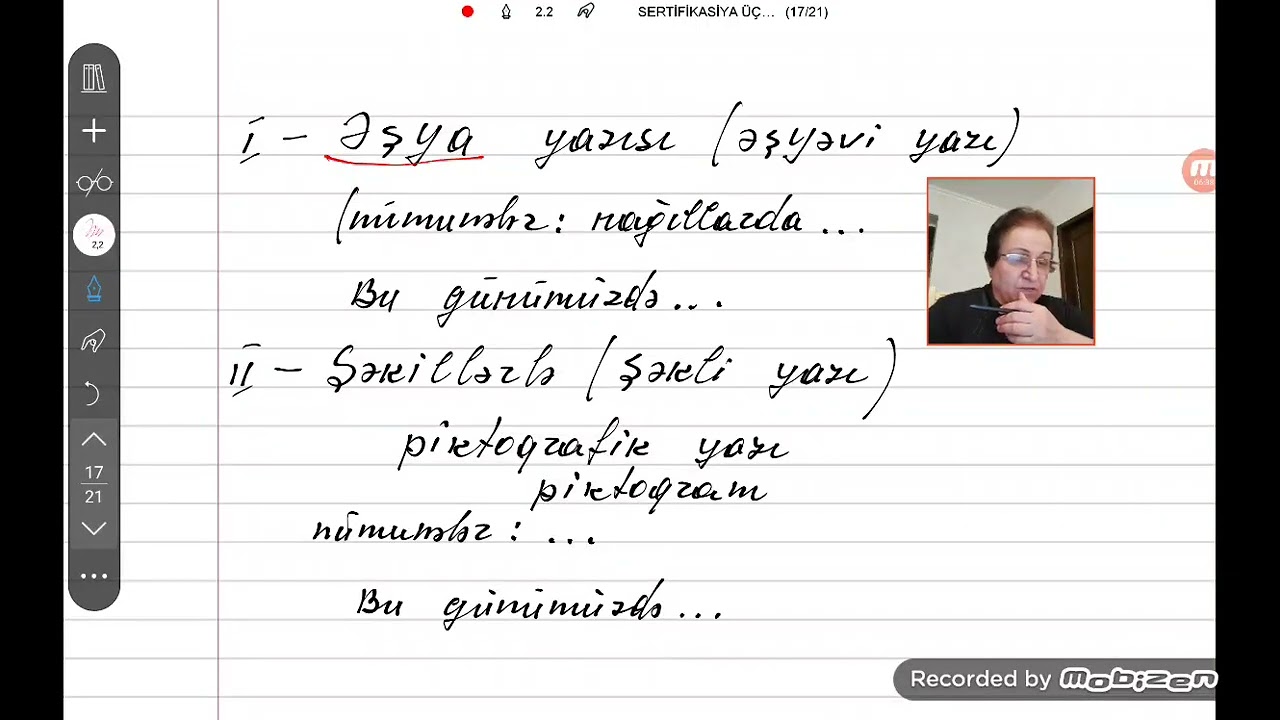 2.2 SERTİFİKASİYA ÜÇ... (17/21)
I - Əşya yazısı (əşyəvi yazı)
(nümunələr: nağıllarda ...
Bu günümüzdə...
II - Şəkillərlə (şəkli yazı)
piktoqrafik yazı
piktoqram
nümunələr: ...
Bu günümüzdə...
2,2
17
21
Recorded by Mobizen